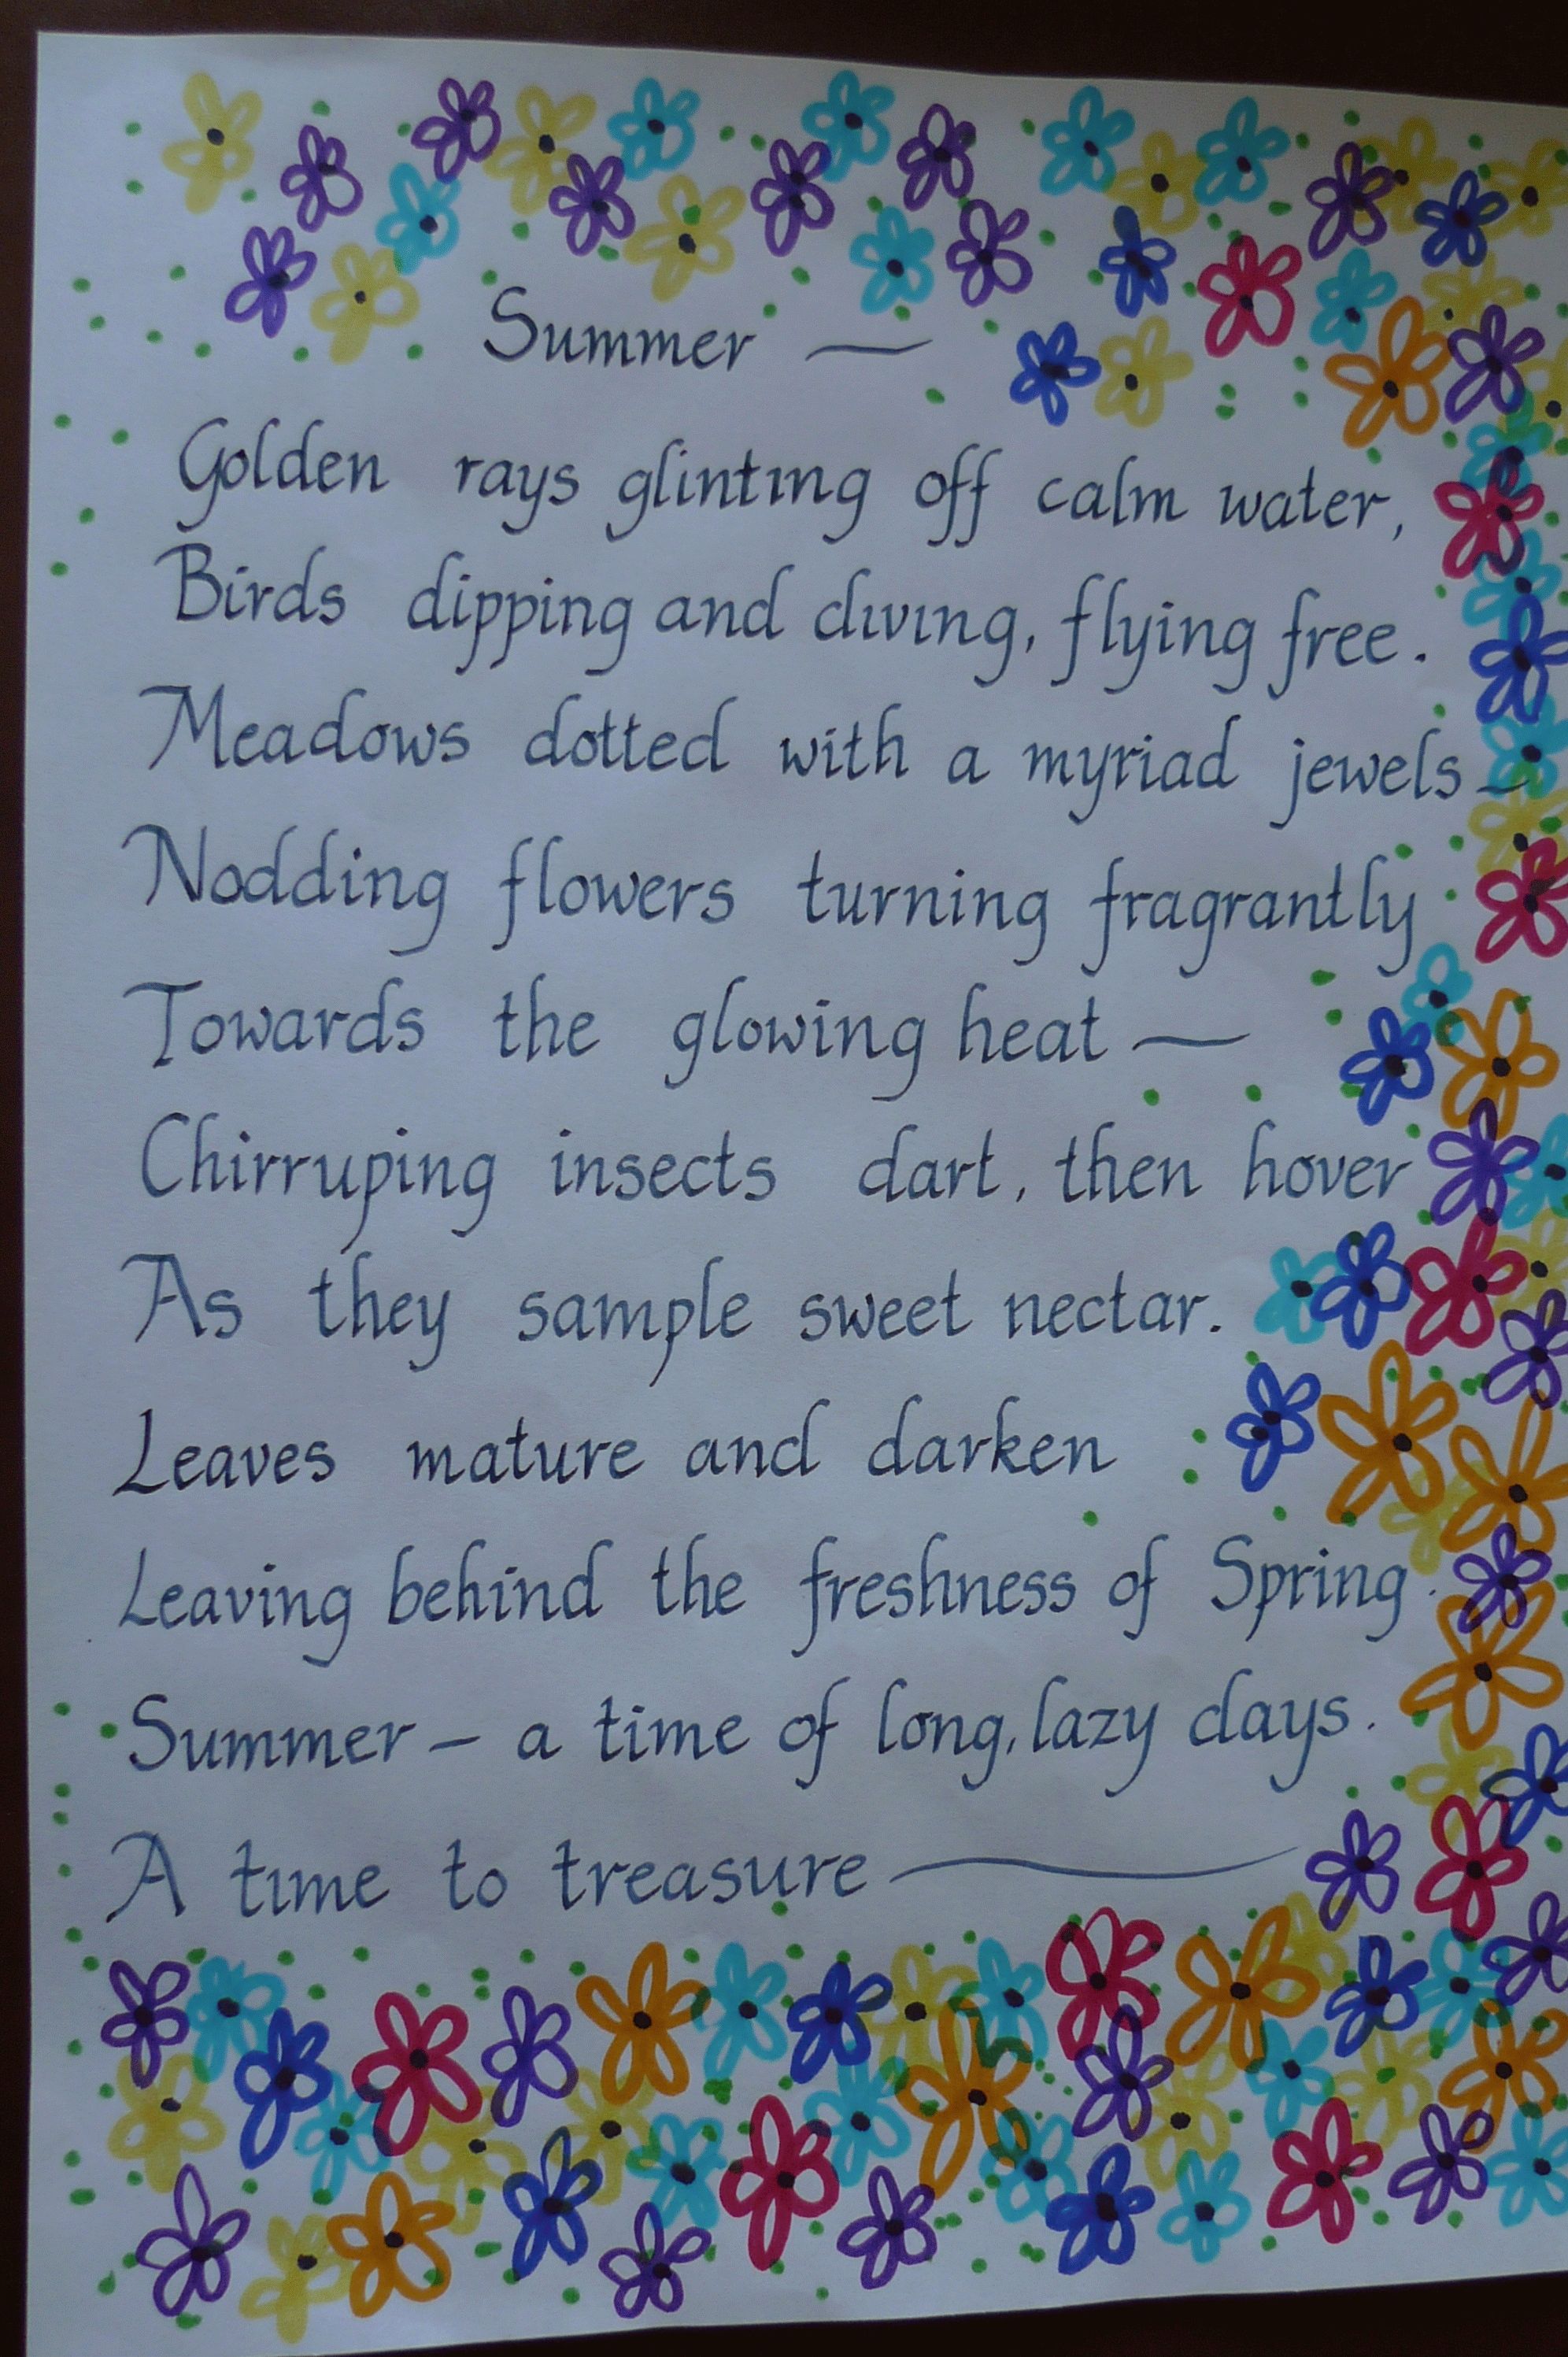 Summer —
Golden rays glinting off calm water,
Birds dipping and diving, flying free.
Meadows dotted with a myriad jewels —
Nodding flowers turning fragrantly
Towards the glowing heat —
Chirruping insects dart, then hover
As they sample sweet nectar.
Leaves mature and darken
Leaving behind the freshness of Spring.
Summer — a time of long, lazy days.
A time to treasure —